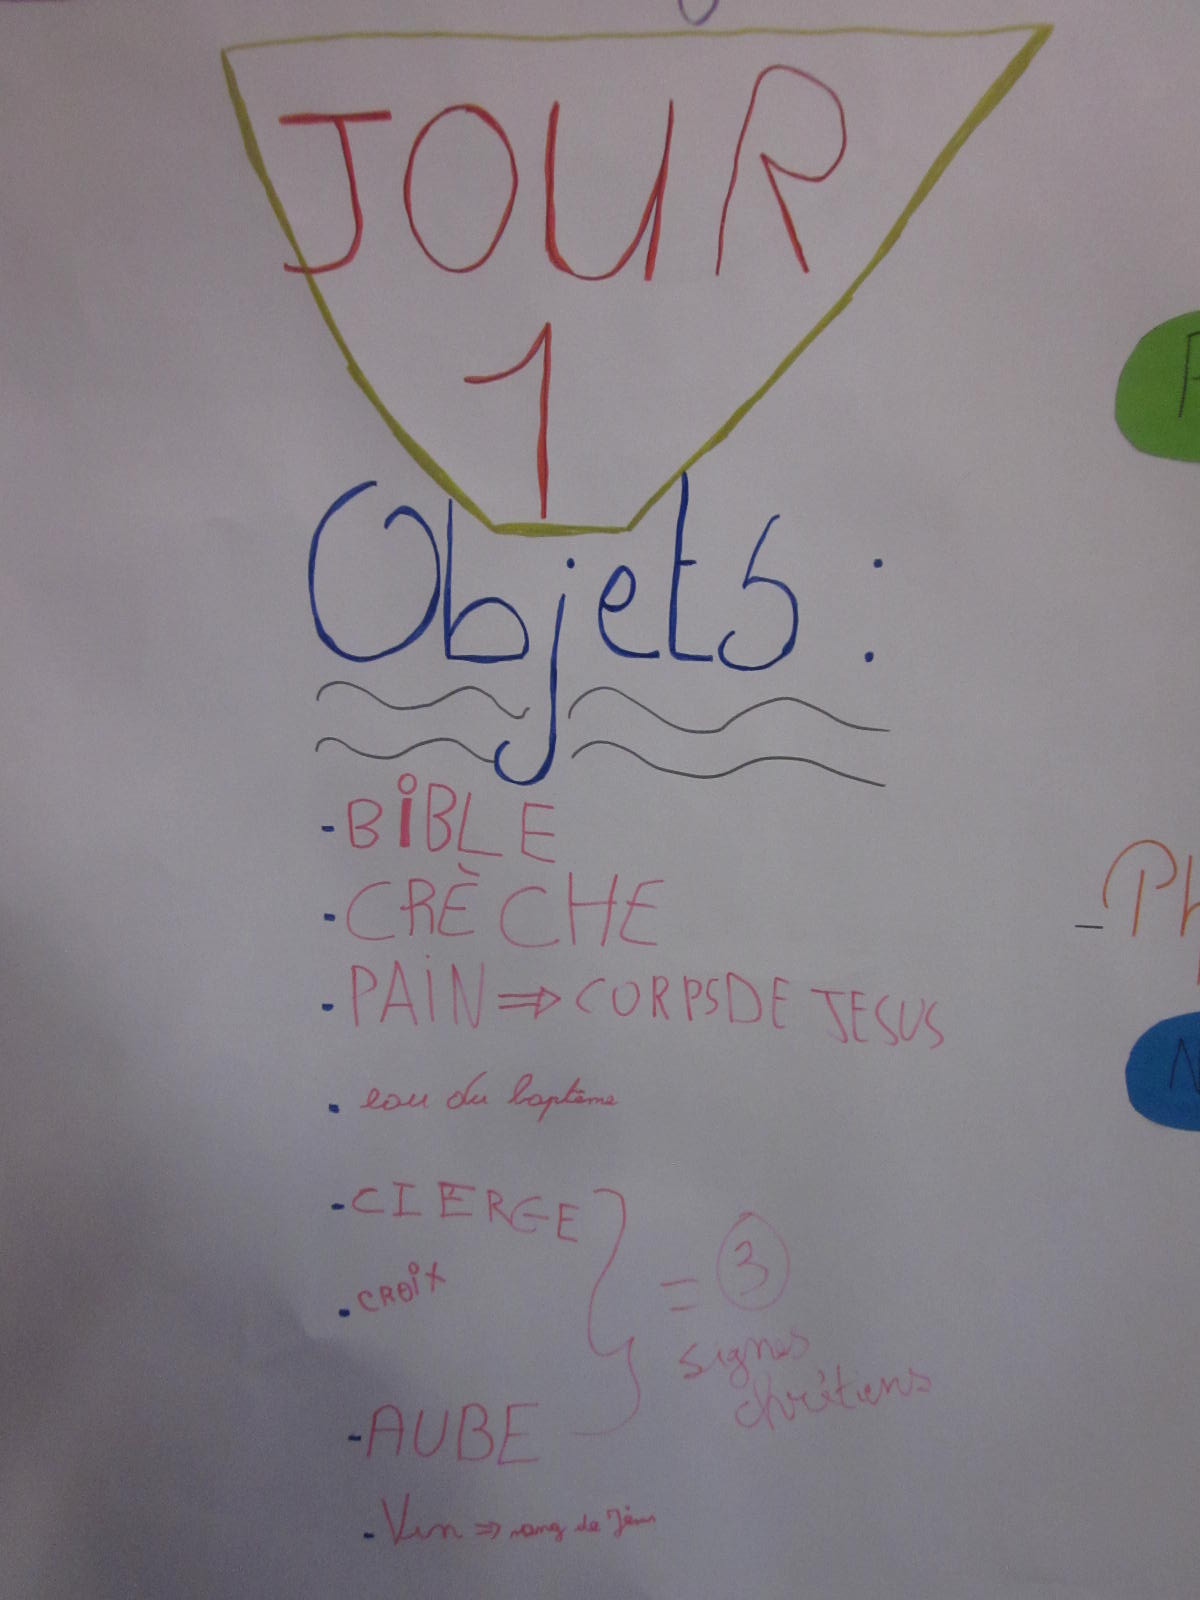 JOUR
1
Objets :
- BiBLE
- CRÈCHE
- PAiN ⇒ CORPS DE JESUS
- eau du baptême
- CIERGE
- CROiX
= 3
signes
chrétiens
- AUBE
- Vin ⇒ sang de Jésus
- Ph